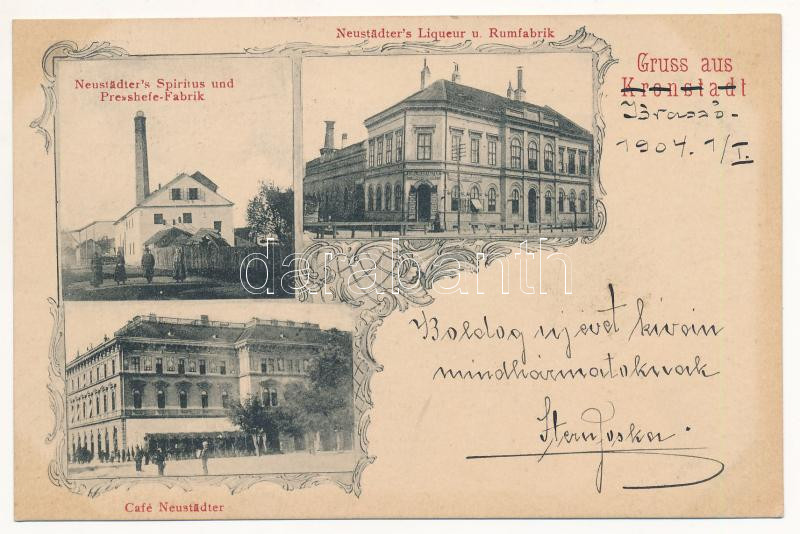 Neustädter's Liqueur u. Rumfabrik
Neustädter's Spiritus und
Presshefe-Fabrik
Gruss aus
Kronstadt
Brassó.
1904. 1/I.
darabanth
Boldog ujévet kiván
mindhármatoknak
Stern Joska.
Café Neustädter